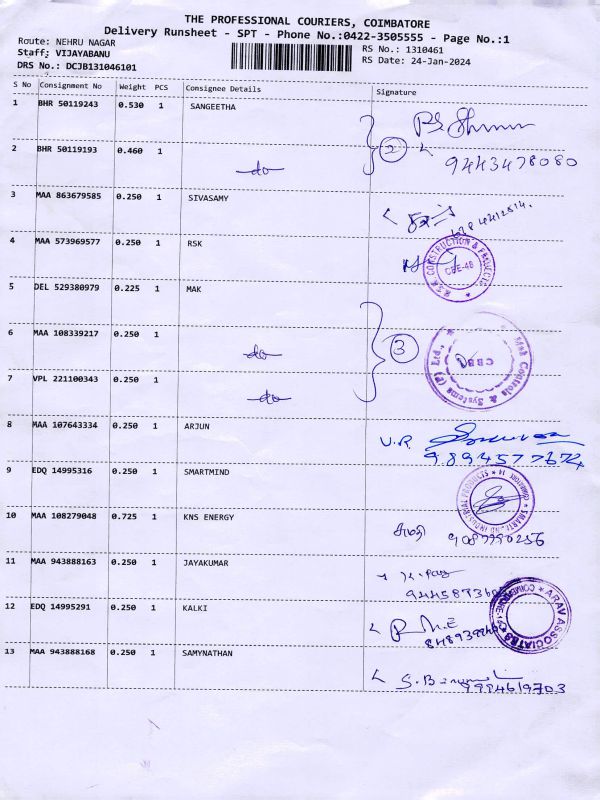 THE PROFESSIONAL COURIERS, COIMBATORE
Delivery Runsheet - SPT - Phone No.:0422-3505555 - Page No.:1
Route: NEHRU NAGAR
RS No.: 1310461
Staff: VIJAYABANU
RS Date: 24-Jan-2024
DRS No.: DCJB131046101
S No Consignment No Weight PCS Consignee Details Signature
1 BHR 50119243 0.530 1 SANGEETHA
2 BHR 50119193 0.460 1 do 2 9443478080
3 MAA 863679585 0.250 1 SIVASAMY
4 MAA 573969577 0.250 1 RSK R.S.K. CONSTRUCTION & PROJECTS CBE-48
5 DEL 529380979 0.225 1 MAK
6 MAA 108339217 0.250 1 do 3 Mak Controls & Systems (P) Ltd.,
7 VPL 221100343 0.250 1 do
8 MAA 107643334 0.250 1 ARJUN U.R
9894577674
9 EDQ 14995316 0.250 1 SMARTMIND SMARTMIND INDUSTRIAL PRODUCTS
10 MAA 108279048 0.725 1 KNS ENERGY 9087790256
11 MAA 943888163 0.250 1 JAYAKUMAR
12 EDQ 14995291 0.250 1 KALKI ARAV ASSOCIATES
13 MAA 943888168 0.250 1 SAMYNATHAN 9994619703